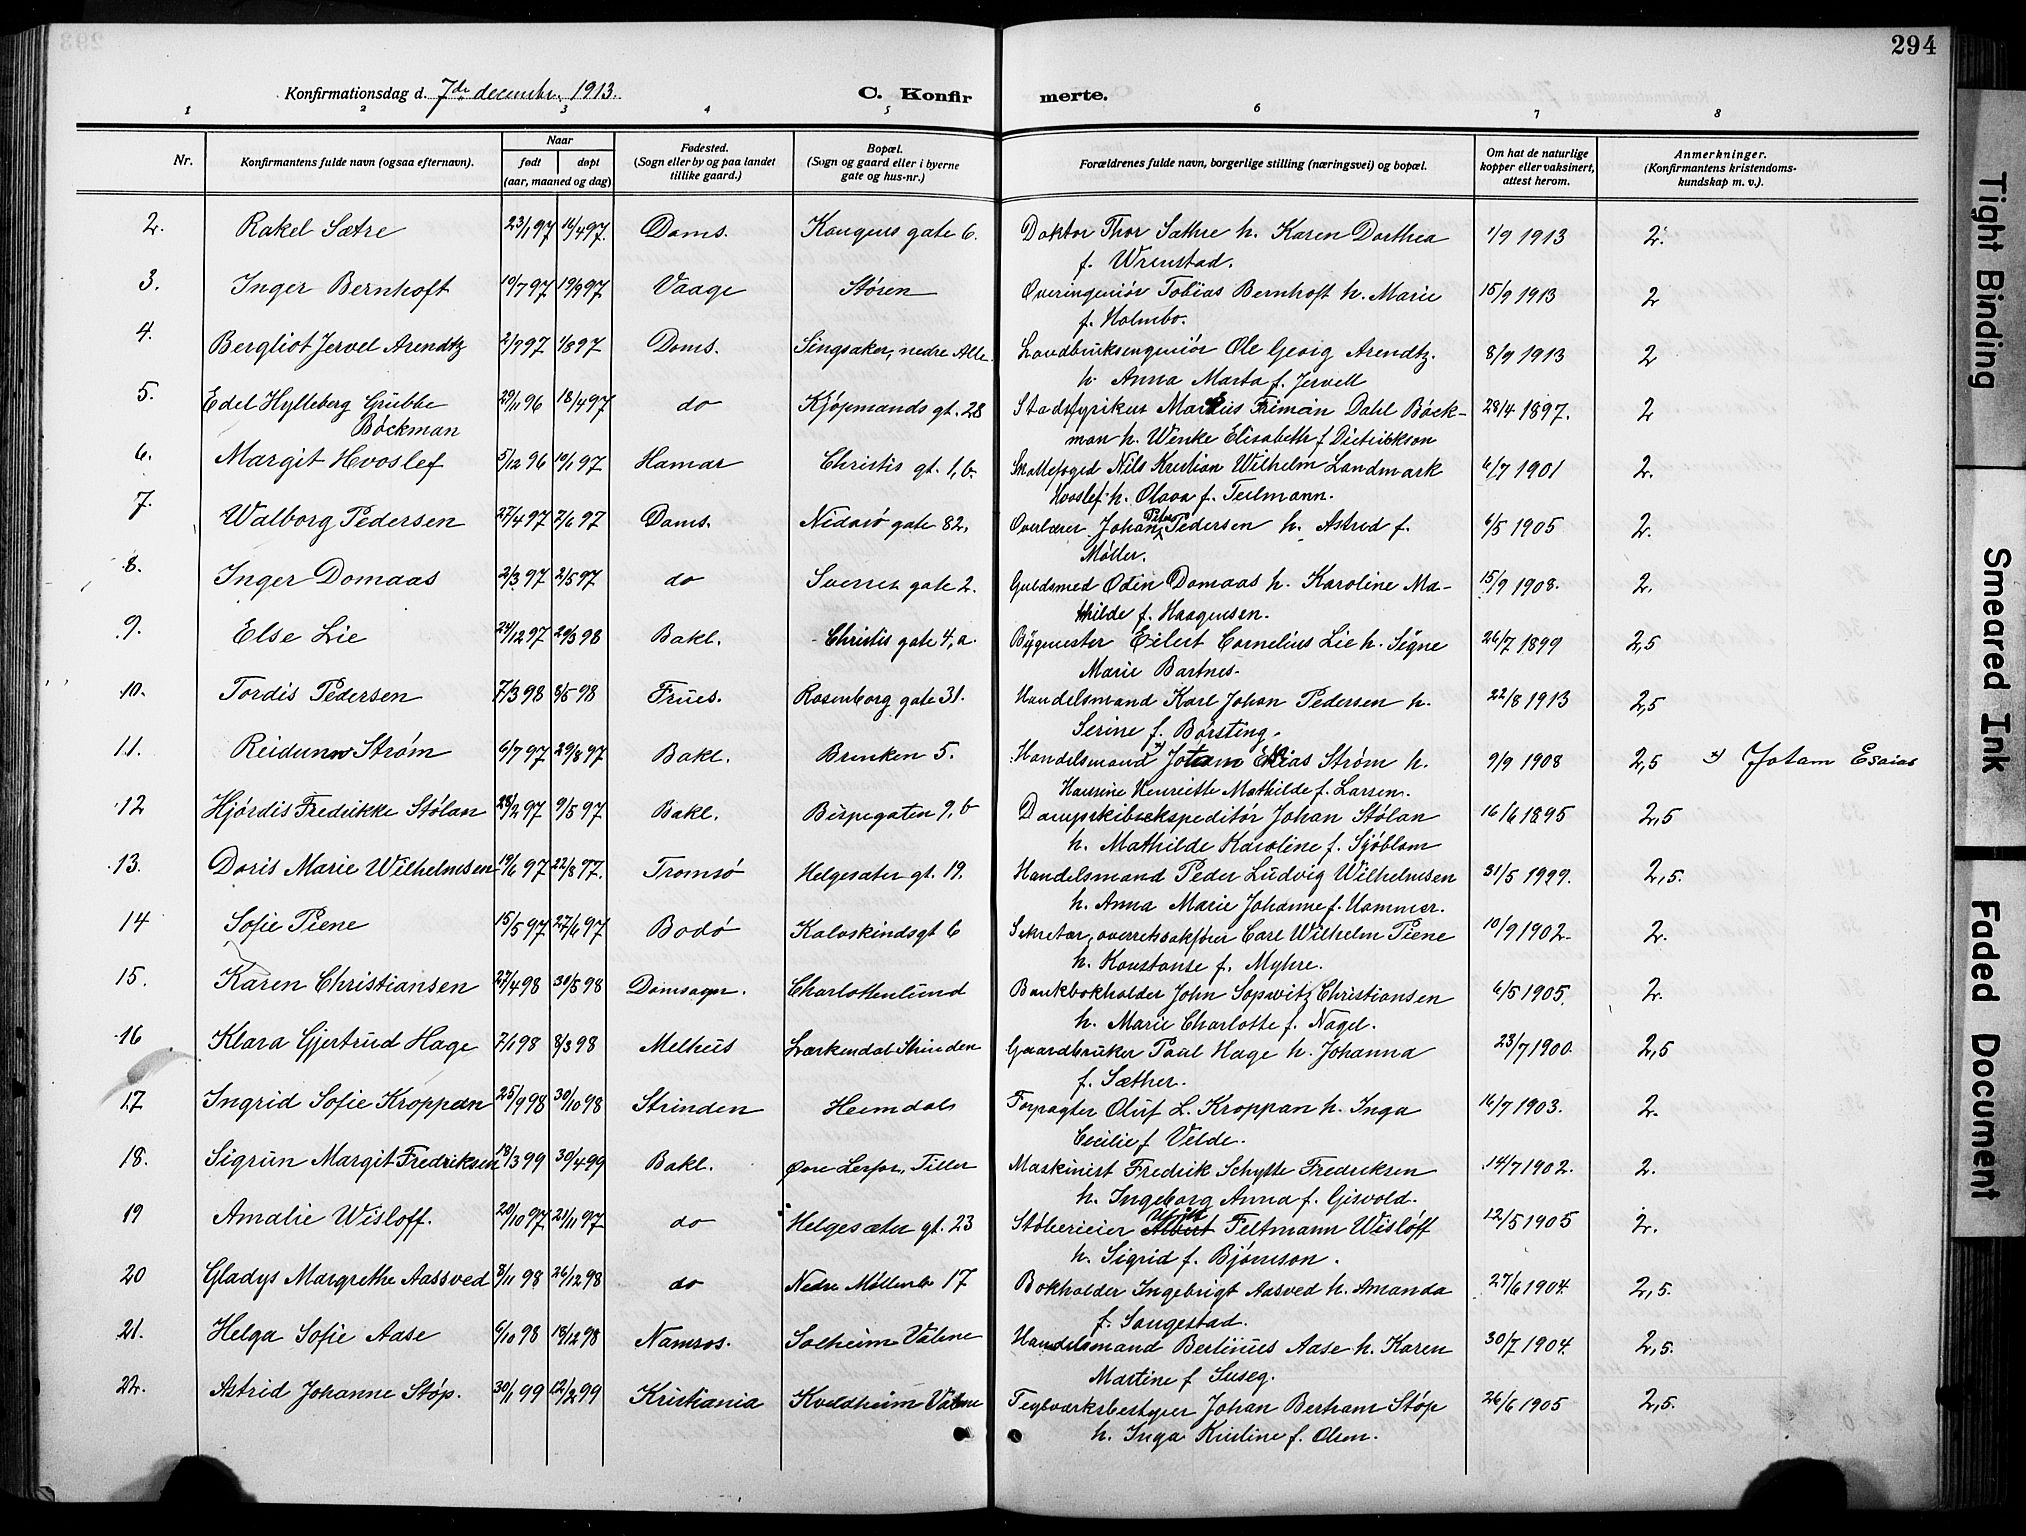 294
Konfirmationsdag d. 7de decembr. 1913.
C. Konfirmerte.
1 2 3 4 5 6 7 8
Nr. Konfirmantens fulde navn (ogsaa efternavn). Naar født døpt (aar, maaned og dag) Fødested. (Sogn eller by og paa landet tillike gaard.) Bopæl. (Sogn og gaard eller i byerne gate og hus-nr.) Forældrenes fulde navn, borgerlige stilling (næringsvei) og bopæl. Om hat de naturlige kopper eller vaksinert, attest herom. Anmerkninger. (Konfirmantens kristendomskundskap m. v.).
2. Rakel Sætre 23/1 97 16/4 97. Doms. Kongens gate 6. Doktor Thor Sæthre h. Karen Dorthea 1/9 1913 2.
f. Wrenstad.
3. Inger Bernhoft 19/7 97 19/9 97 Vaage Støren Overingeniør Tobias Bernhoft h. Marie 15/9 1913 2
f. Holmbo.
4. Bergliot Jervel Arendtz 2/7 97 1/8 97 Doms. Singsaker, nedre Alle Landbruksengeniør Ole Georg Arendtz. 8/9 1913 2
h. Anna Marta f. Jervell
5. Edel Hylleberg Grubbe 29/11 96 18/4 97 do Kjøpmands gt. 28 Stadsfysikus Marius Friman Dahl Böck- 28/4 1897. 2
Böckman man h. Wenke Elisabeth f Dietrickson
6. Margit Hvoslef 5/12 96 10/1 97 Hamar Christis gt. 1, b. Skattefoged Nils Kristian Wilhelm Landmark 6/7 1901 2.
Hvoslef h. Olava f. Teilmann.
7. Walborg Pedersen 27/4 97 7/6 97 Doms. Nidarø gate 82, Overlærer Johan Peter Pedersen h. Astrid f. 6/5 1905 2.
Møller.
8. Inger Domaas 2/3 97 2/5 97 do Sverres gate 2. Guldsmed Odin Domaas h. Karoline Ma- 15/9 1908. 2.
thilde f. Haagensen.
9. Else Lie 24/12 97 20/3 98 Bakl. Christis gate 4, a. Bygmester Eilert Cornelius Lie h. Signe 26/7 1899 2,5
Marie Bartnes.
10. Tordis Pedersen 7/3 98 8/5 98 Frues. Rosenborg gate 31. Handelsmand Karl Johan Pedersen h. 22/8 1913 2,5
Serine f. Børsting.
11. Reidunn Strøm 6/7 97 29/8 97 Bakl. Brinken 5. Handelsmand x) Jotam Elias Strøm h. 9/9 1908 2,5 x) Jotam Esaias
Haurine Henriette Mathilde f. Larsen.
12 Hjørdis Fredrikke Stølan 28/2 97 9/5 97 Bakl. Bispegaten 9, b Dampskibsekspeditør Johan Stølan 16/6 1895 2,5
h. Mathilde Karoline f. Sjöblom
13. Doris Marie Wilhelmsen 19/6 97 22/8 97. Tromsø Helgesæter gt. 19. Handelsmand Peder Ludvig Wilhelmsen 31/5 1929. 2,5.
h. Anna Marie Johanne f. Hammer.
14 Sofie Piene 15/5 97 27/6 97 Bodø Kalvskindsgt 6 Sekretær, overretssakfører Carl Wilhelm Piene 10/9 1902. 2.
h. Konstanse f. Myhre.
15. Karen Christiansen 27/4 98 30/5 98 Domsogn. Charlottenlund Bankbokholder John Sopwitz Christiansen 6/5 1905. 2.
h. Marie Charlotte f. Nagel.
16 Klara Gjertrud Hage 7/1 98 8/3 98 Melhus Lærkendal Strinden Gaardbruker Paul Hage h. Johanna 23/7 1900. 2,5
f. Sæther.
17 Ingrid Sofie Kroppan 25/9 98 30/10 98 Strinden Heimdal Forpagter Oluf L. Kroppan h. Inga 16/7 1903. 2.
Cecilie f Velde.
18. Sigrun Margit Fredriksen 18/3 99 30/4 99 Bakl. Øvre Lerfos, Tiller Maskinist Fredrik Schytte Fredriksen 14/7 1902. 2.
h. Ingeborg Anna f. Gisvold.
19 Amalie Wisloff. 20/10 97 21/11 97 do Helgesæter gt. 23 Støberieier Albert Feltmann Wisløff 12/5 1905 2.
h. Sigrid f. Bjørnson.
20 Gladys Margrethe Aassved 8/11 98 26/12 98 do Nedre Møllenb 17 Bokholder Ingebrigt Aasved h. Amanda 27/6 1904. 2,5.
f. Saugestad.
21. Helga Sofie Aase 6/10 98 18/12 98 Namsos. Solheim Valene Handelsmand Bertinius Aase h. Karen 30/7 1904. 2,5.
Martine f Suseg.
22. Astrid Johanne Støp. 30/1 99 12/2 99 Kristiania Kveldheim Valene Teglværksbestyrer Johan Bertram Støp 26/6 1905 2,5.
h. Inga Kristine f. Olsen.
Tight Binding
Smeared Ink
Faded Document